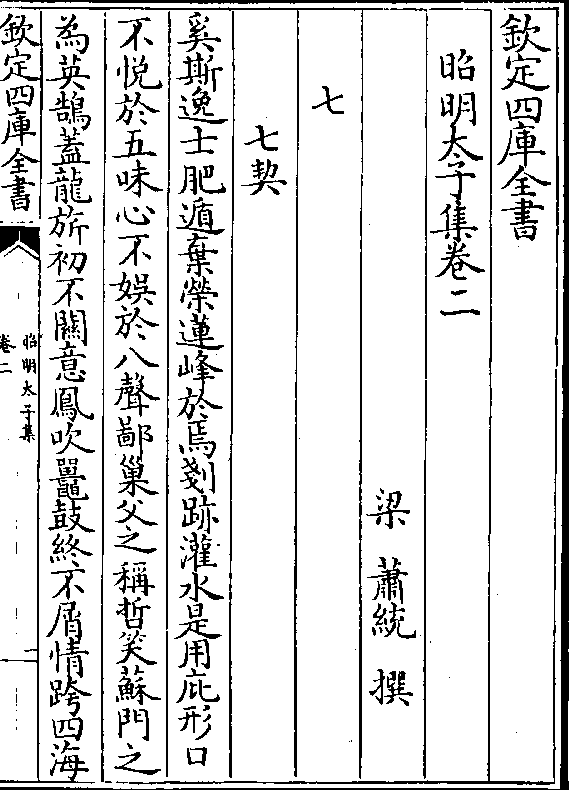 欽定四庫全書
昭明太子集卷二
梁 蕭統 撰
七
七契
奚斯逸士肥遁棄榮蓮峰於焉剗跡灌水是用庇形口
不悦於五味心不娯於八聲鄙巢父之稱哲笑蘇門之
為英鵠蓋龍旂初不關意鳳吹鼉鼓終不屑情跨四海
欽定四庫全書
昭明太子集
卷二
一